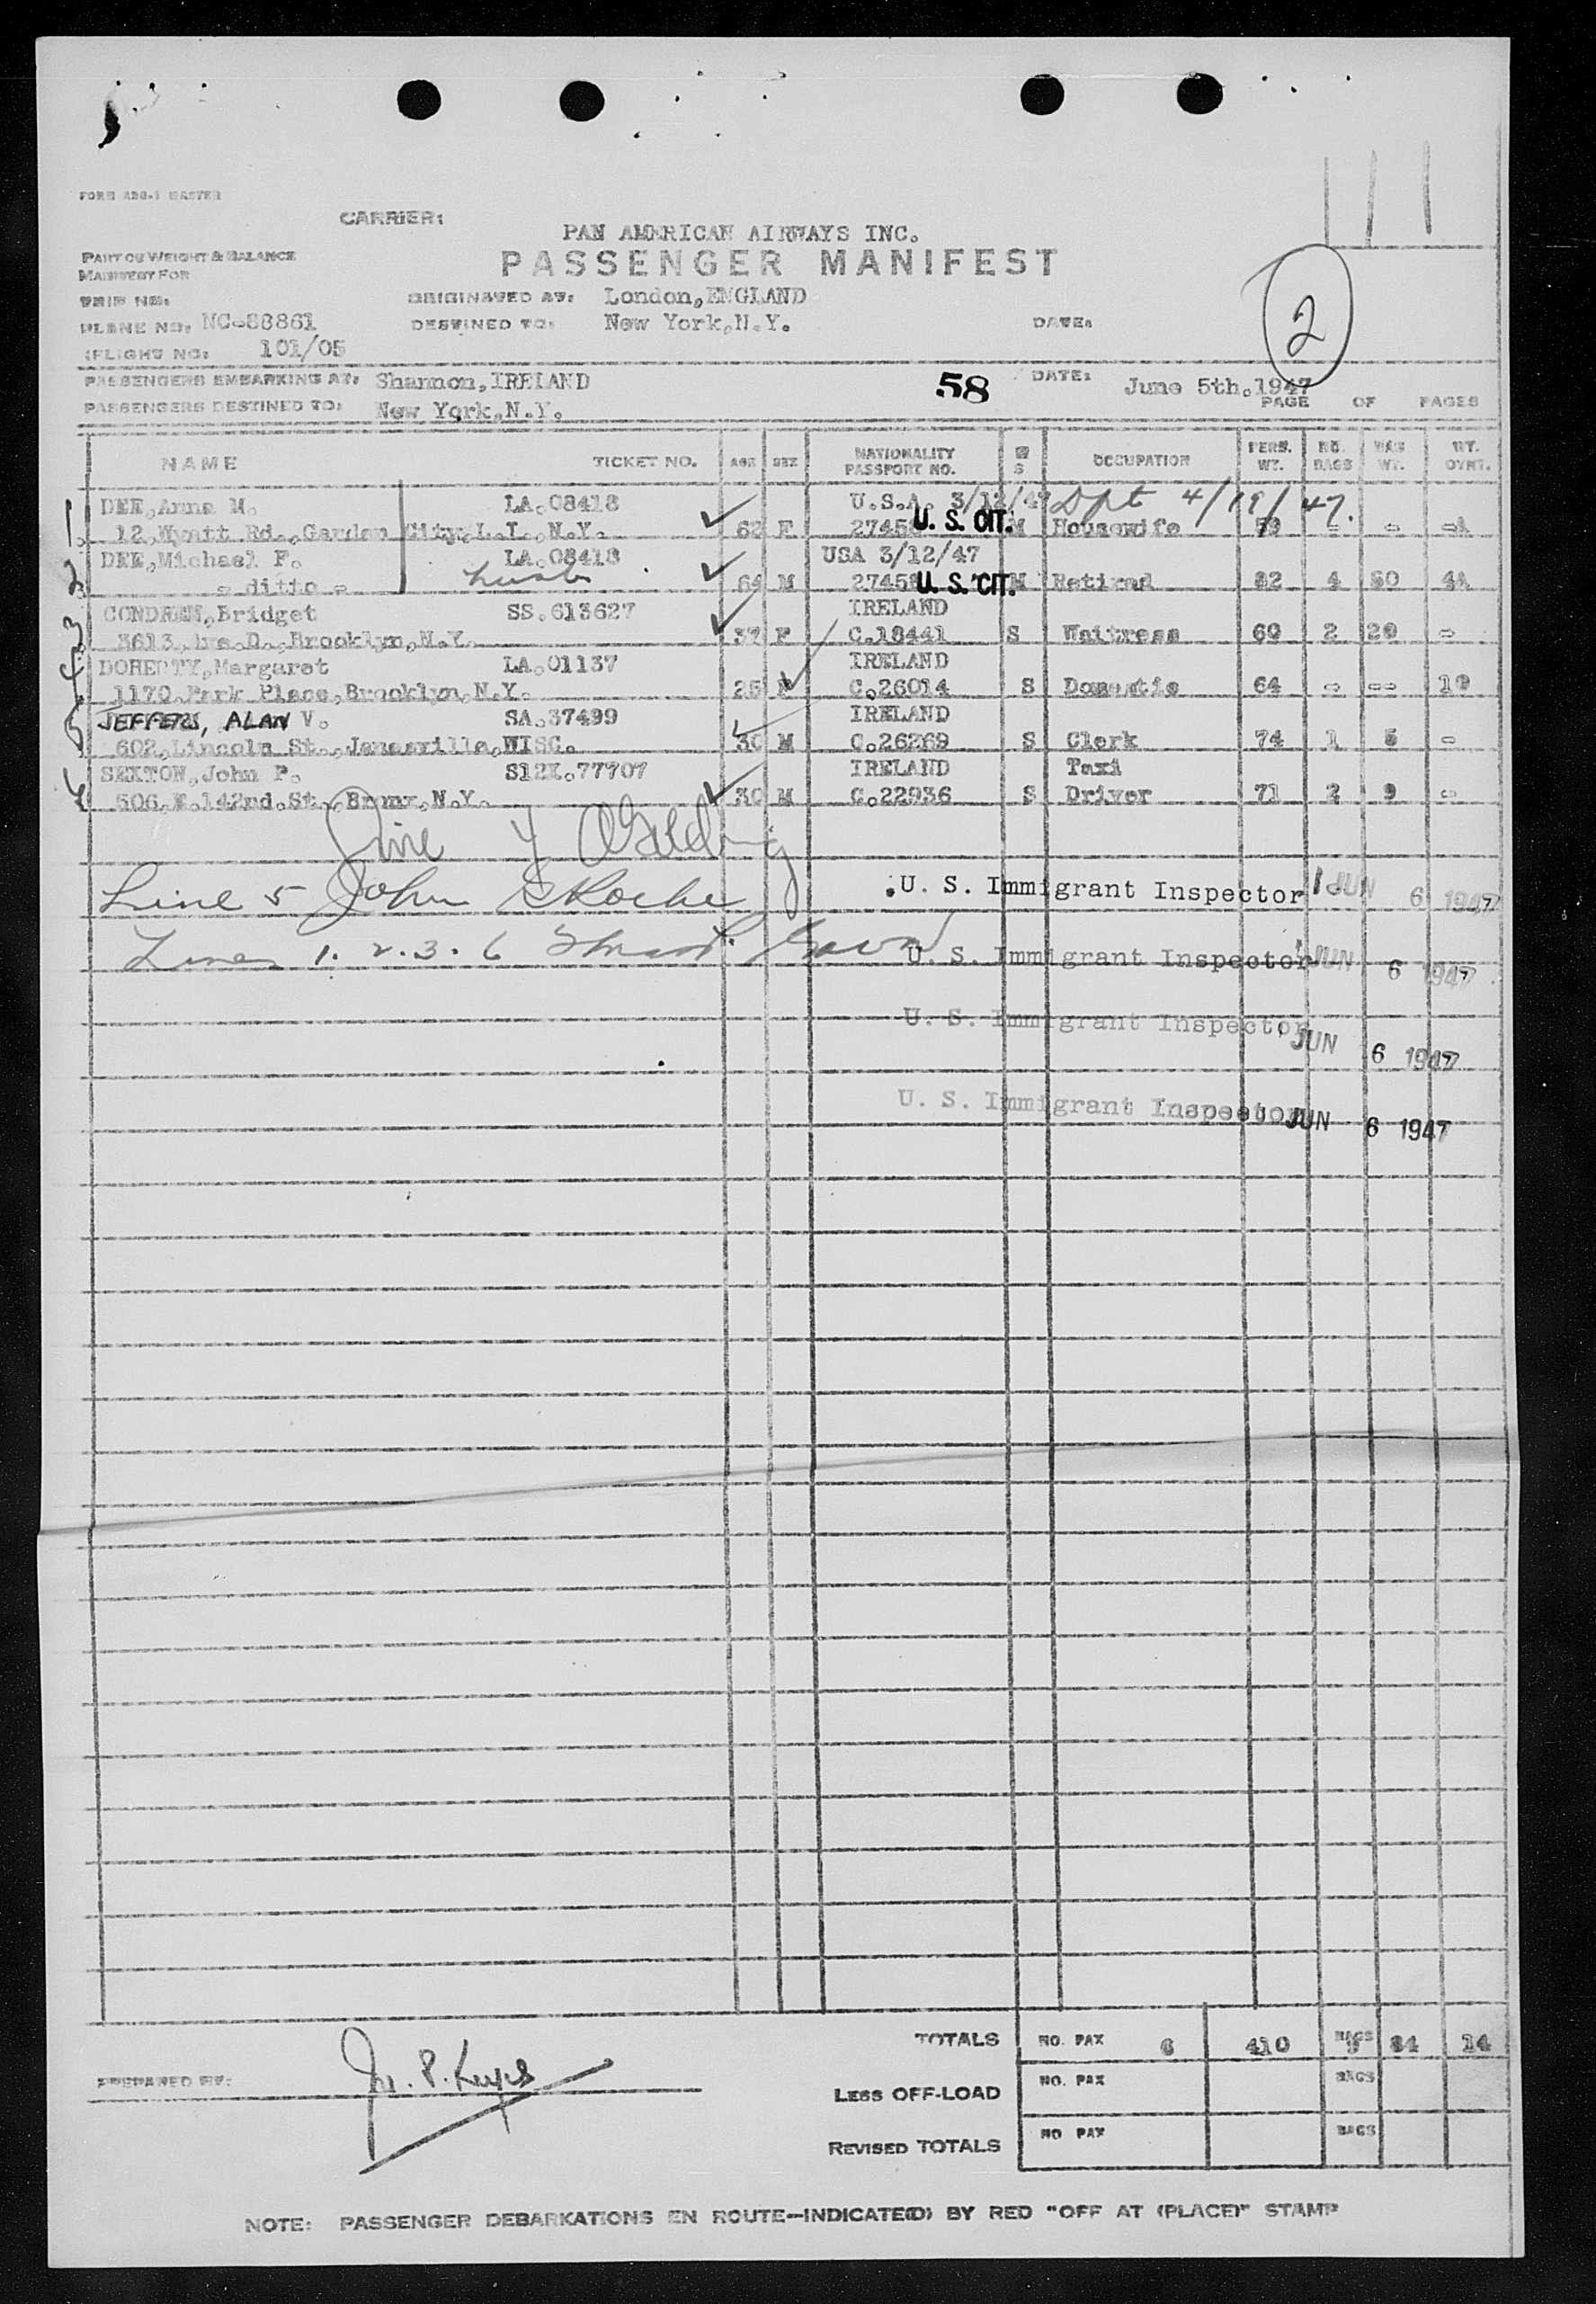 FORM ADG-1 MASTER
CARRIER:
PAN AMERICAN AIRWAYS INC.
PART OF WEIGHT & BALANCE
PASSENGER MANIFEST
MANIFEST FOR
TRIP NO:
ORIGINATED AT: London,ENGLAND
PLANE NO: NC-88861
DESTINED TO: New York,N.Y.
DATE:
2
(FLIGHT NO: 101/05
PASSENGERS EMBARKING AT: Shannon,IRELAND
58
DATE: June 5th.1947
PASSENGERS DESTINED TO: New York,N.Y.
PAGE OF PAGES
NAME TICKET NO. AGE SEX NATIONALITY PASSPORT NO. M S OCCUPATION PERS. WT. NO. BAGS BAG WT. WT. OVWT.
1 DEE,Anna M. LA.08418 U.S.A. 3/12/47 Dpt 4/19/47.
12,Wyatt Rd.,Garden City,L.I.,N.Y. 62 F 2745 U. S. CIT. M Housewife - - -
2 DEE,Michael F. LA.08418 USA 3/12/47
- ditto - husb 64 M 2745 U. S. CIT. M Retired 82 4 50 4A
3 CONDREN,Bridget SS.613627 IRELAND
3613,Ave.D.,Brooklyn,N.Y. 37 F C.18441 S Waitress 60 2 20 -
4 DOHERTY,Margaret LA.01137 IRELAND
1170,Park Place,Brooklyn,N.Y. 25 F C.26014 S Domestic 64 - -- 10
5 JEFFERS, ALAN V. SA.37499 IRELAND
602,Lincoln St.,Janesville,WISC. 30 M C.26269 S Clerk 74 1 5 -
6 SEXTON,John P. S12X.77707 IRELAND Taxi
506,E.142nd.St.,Bronx,N.Y. 30 M C.22936 S Driver 71 2 9 -
Line 4
Line 5 John
U. S. Immigrant Inspector JUN 6 1947
Lines 1. 2. 3. 6
U. S. Immigrant Inspector JUN 6 1947
U. S. Immigrant Inspector JUN 6 1947
U. S. Immigrant Inspector JUN 6 1947
TOTALS NO. PAX 6 410 BAGS 9 84 14
PREPARED BY:
LESS OFF-LOAD NO. PAX BAGS
REVISED TOTALS NO PAX BAGS
NOTE: PASSENGER DEBARKATIONS EN ROUTE—INDICATE(D) BY RED "OFF AT (PLACE)" STAMP